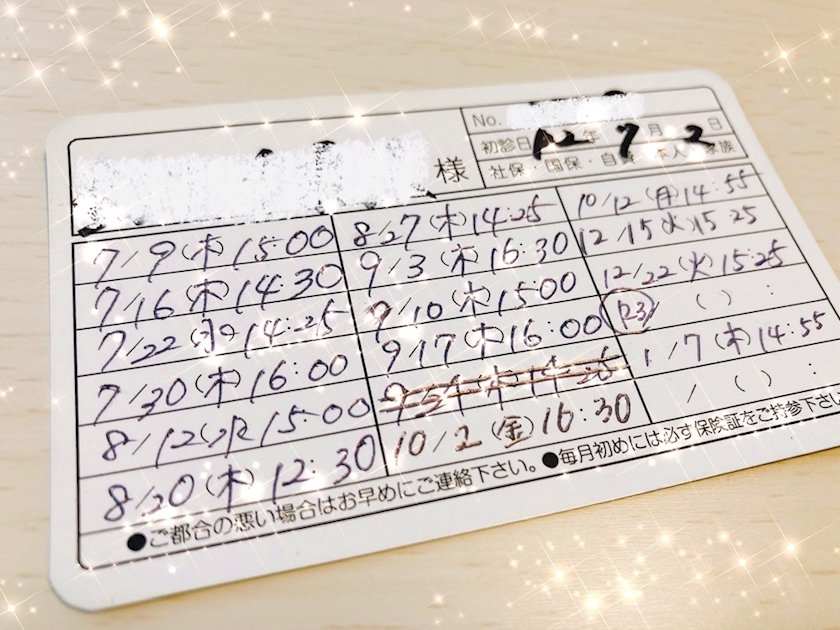 様
No.
初診日 年 7月 2日
社保・国保・自 本人 家族
7/9(木)15:00
7/16(木)14:30
7/22(水)14:25
7/30(木)16:00
8/12(水)15:00
8/20(木)12:30
8/27(木)14:25
9/3(木)16:30
9/10(木)15:00
9/17(木)16:00
10/2(金)16:30
10/12(月)14:55
12/15(火)15:25
12/22(火)15:25
( ) :
1/7(木)14:55
/ ( ) :
●ご都合の悪い場合はお早めにご連絡下さい。●毎月初めには必ず保険証をご持参下さい